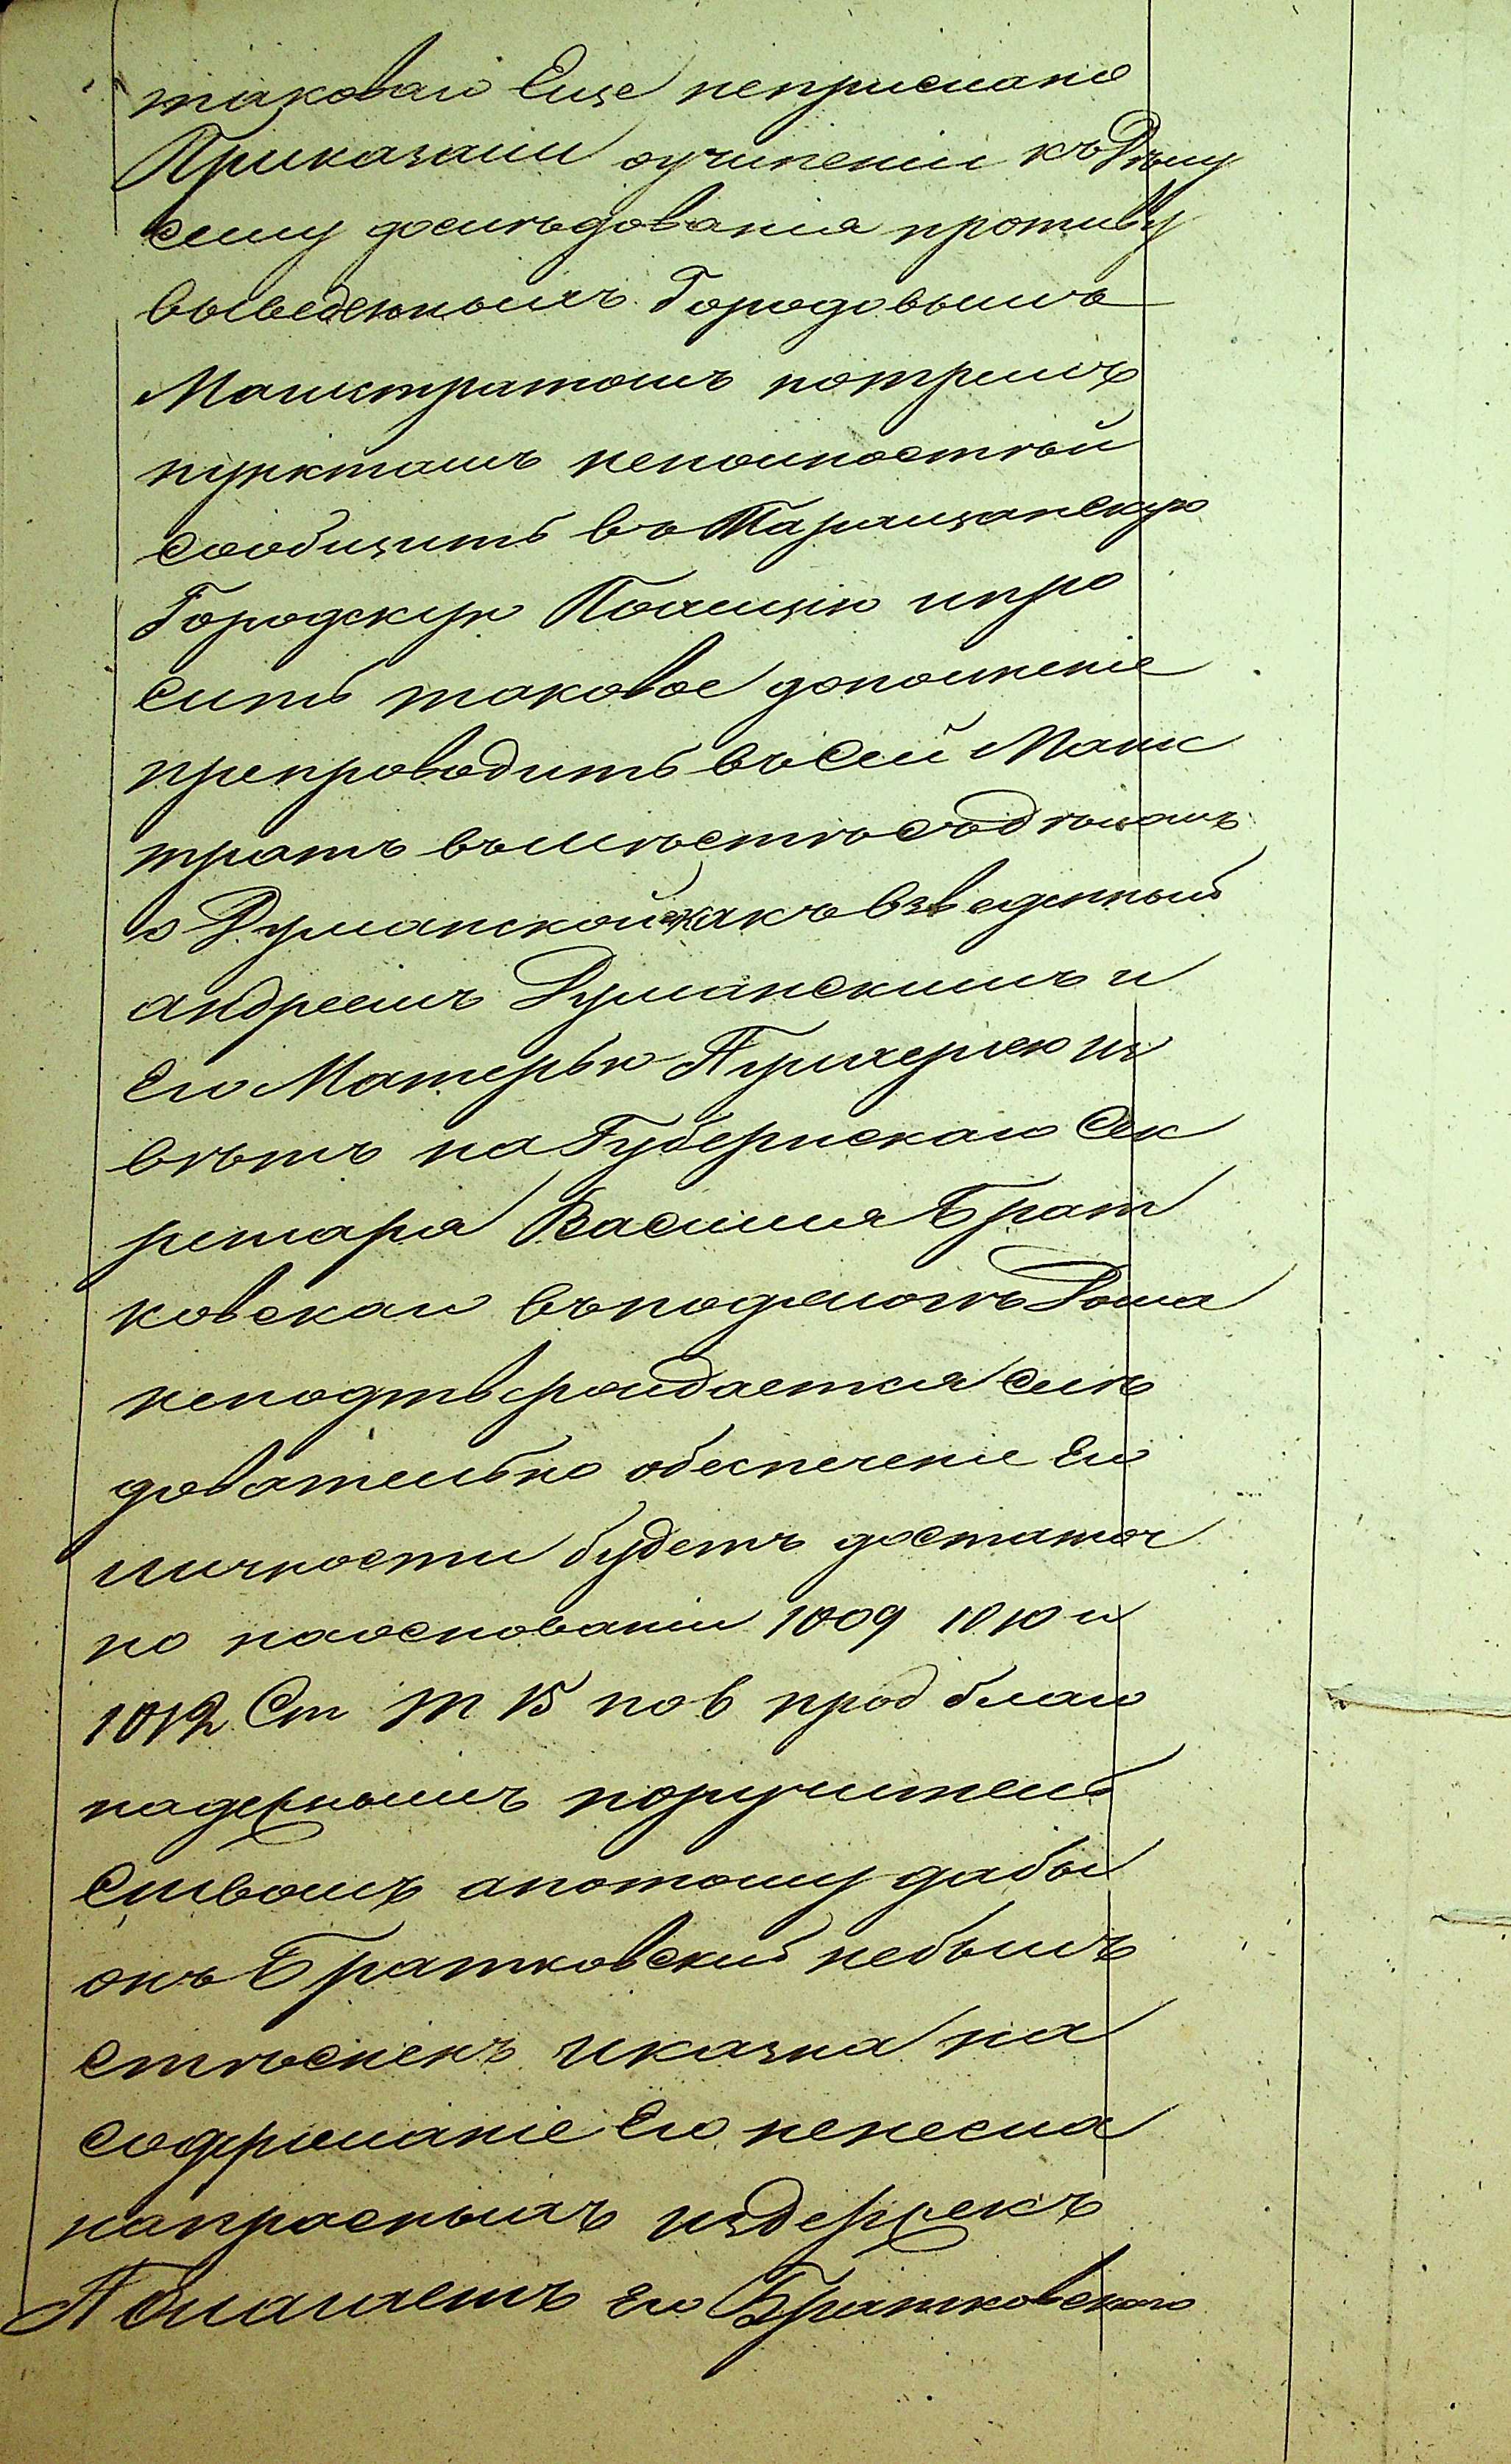 таковаго Еще неприслано
Приказали оучинении къ Дѣлу
сему дослѣдованія противу
выведеннымъ Городовымъ
Магистратомъ потремъ
пунктамъ неполностѣй
сообщить въ Таращанскую
Городскую Полицію ипро
сить таковое дополненіе
препроводить въ Сей Магис
тратъ вмѣстѣ съ дѣломъ
о Думанской какъ взведенный
андреемъ Думанскимъ и
Его Матерью Пульхеріею из
вѣтъ на Губернскаго Сек
ретаря Василія Брат
ковскаго въ поджогѣ Дома
неподтверждается слѣ
довательно обеспеченіе Его
личности будетъ достаточ
но наоснованіи 1009 1010 и
1012 Ст Т 15 по 6 прод благо
надежнымъ поручитель
ствомъ апотому дабы
онъ Братковскій небылъ
стѣсненъ иказна на
содержаніе Его ненесла
напрасныхъ издержекъ
Его Братковскаго